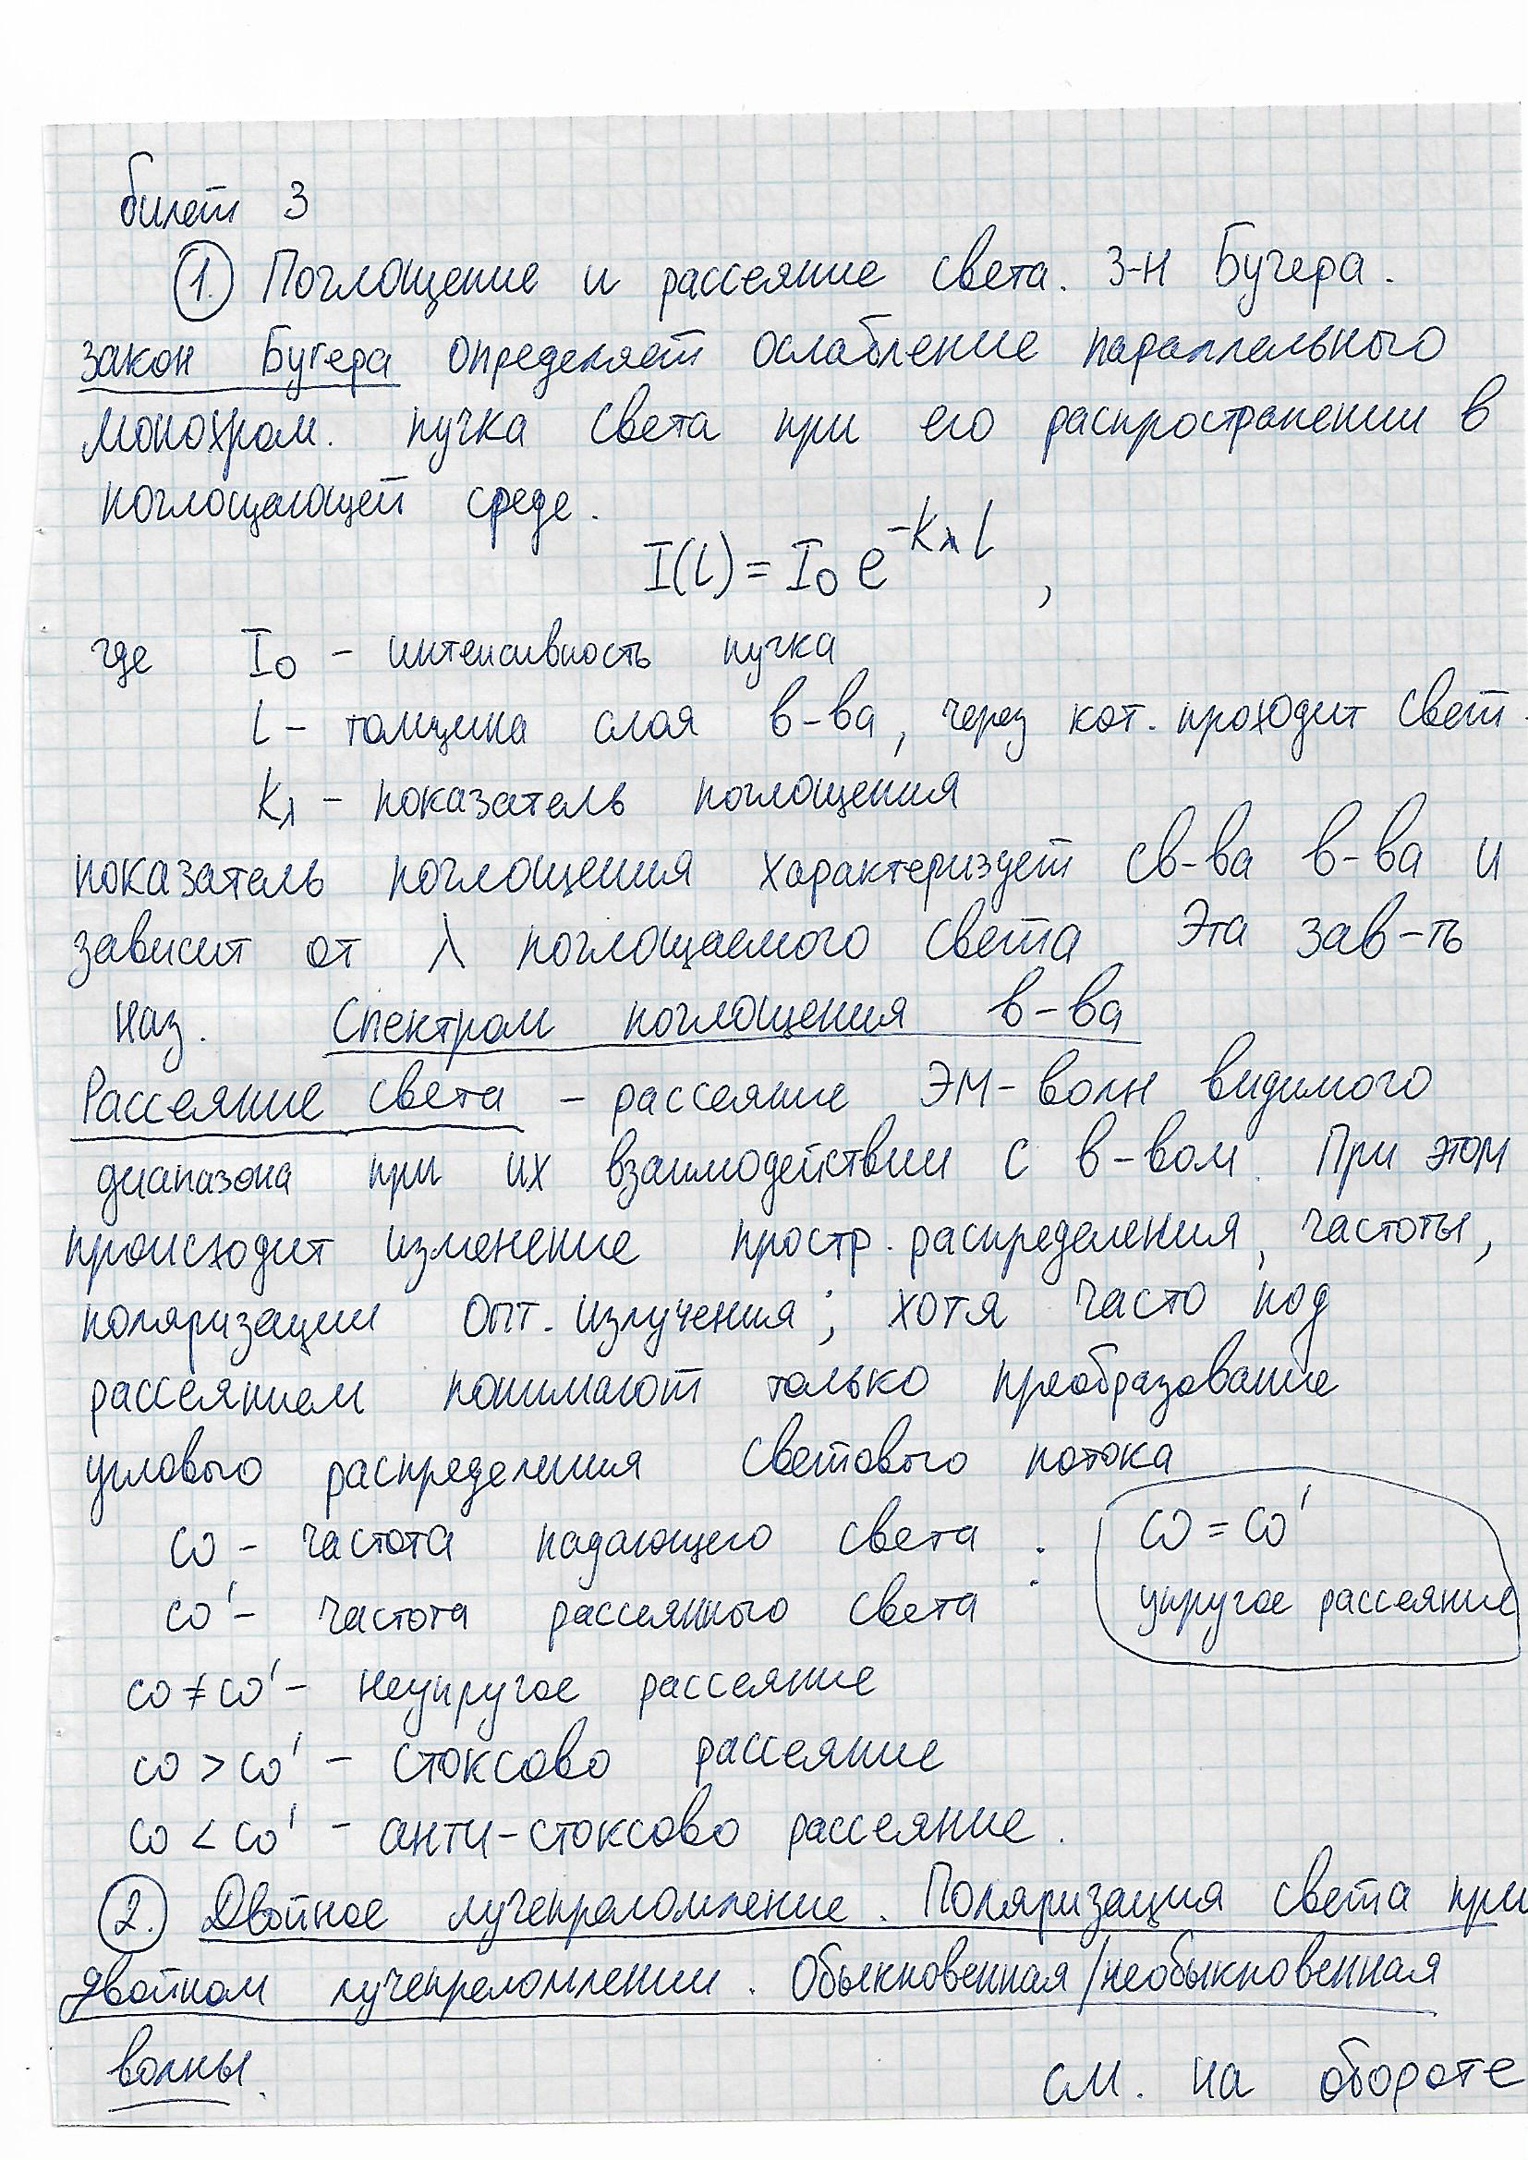 билет 3
1. Поглощение и рассеяние света. З-н Бугера.
закон Бугера определяет ослабление параллельного
монохром. пучка света при его распространении в
поглощающей среде.
I(l) = I₀ e^(-kλ l) ,
где I₀ - интенсивность пучка
l - толщина слоя в-ва, через кот. проходит свет.
kλ - показатель поглощения
показатель поглощения характеризует св-ва в-ва и
зависит от λ поглощаемого света Эта зав-ть
наз. спектром поглощения в-ва
Рассеяние света - рассеяние ЭМ-волн видимого
диапазона при их взаимодействии с в-вом. При этом
происходит изменение простр. распределения, частоты,
поляризации опт. излучения; хотя часто под
рассеянием понимают только преобразование
углового распределения светового потока
ω - частота падающего света . ω = ω'
ω' - частота рассеянного света : упругое рассеяние
ω ≠ ω' - неупругое рассеяние
ω > ω' - стоксово рассеяние
ω < ω' - анти-стоксово рассеяние.
2. Двойное лучепреломление. Поляризация света при
двойном лучепреломлении. Обыкновенная/необыкновенная
волны.
см. на обороте